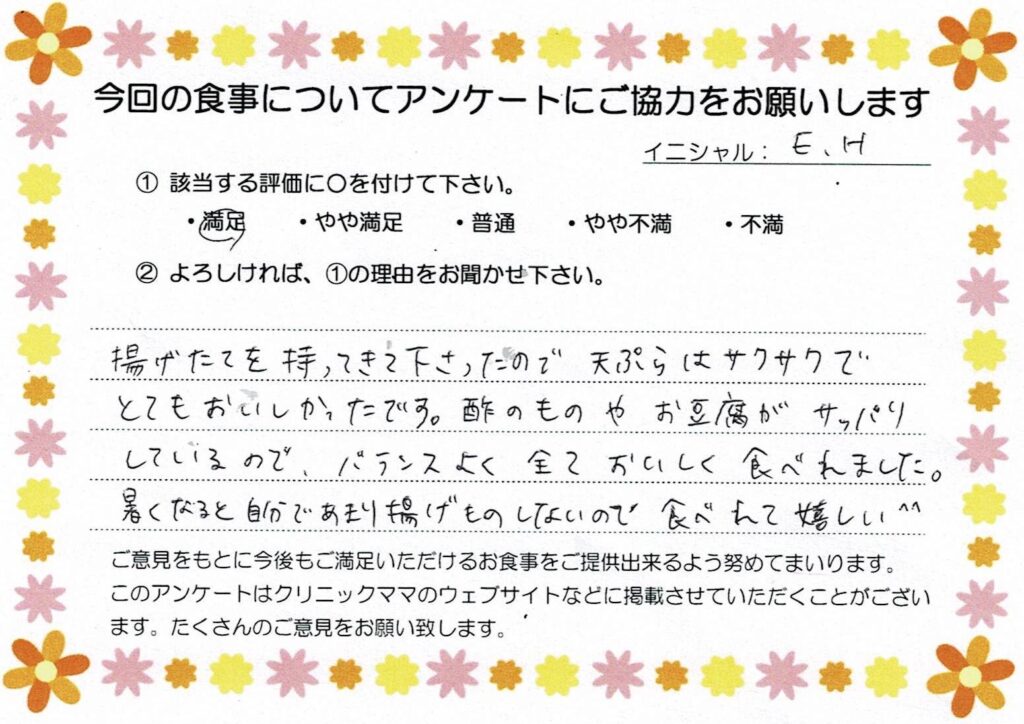 今回の食事についてアンケートにご協力をお願いします
イニシャル： E、H
① 該当する評価に〇を付けて下さい。
・満足 ・やや満足 ・普通 ・やや不満 ・不満
② よろしければ、①の理由をお聞かせ下さい。
揚げたてを持ってきて下さったので 天ぷらはサクサクで
とてもおいしかったです。酢のものや お豆腐が サッパリ
しているので、バランスよく 全て おいしく 食べれました。
暑くなると自分であまり揚げものしないので 食べれて嬉しい^^
ご意見をもとに今後もご満足いただけるお食事をご提供出来るよう努めてまいります。
このアンケートはクリニックママのウェブサイトなどに掲載させていただくことがござい
ます。たくさんのご意見をお願い致します。